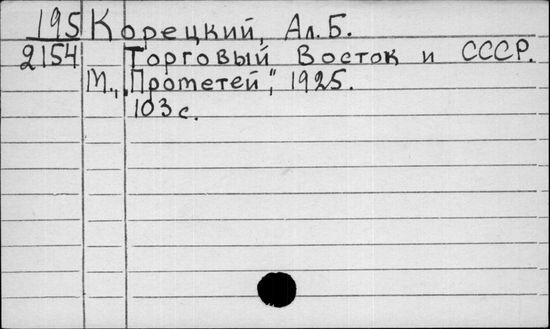 195 Корецкий, Ал. Б.
2154 Торговый Восток и СССР.
М., „Прометей", 1925.
103 с.